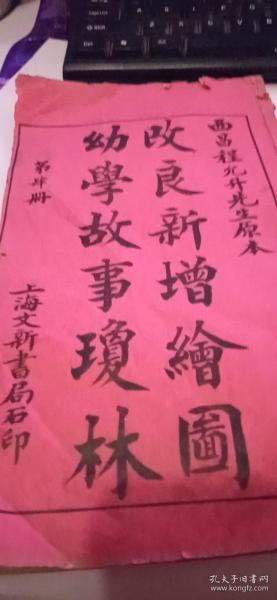 西昌程允升先生原本
改良新增繪圖
幼學故事瓊林
第肆册
上海文新書局石印
孔夫子旧书网
www.kongfz.com